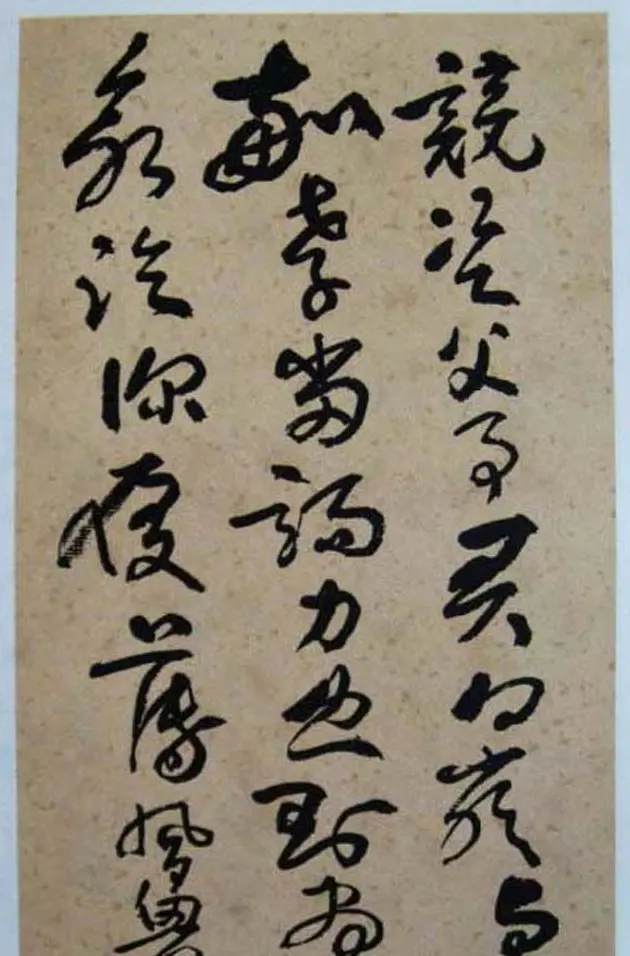 競資父事君曰嚴與
敬孝當竭力忠則盡
命臨深履薄夙興